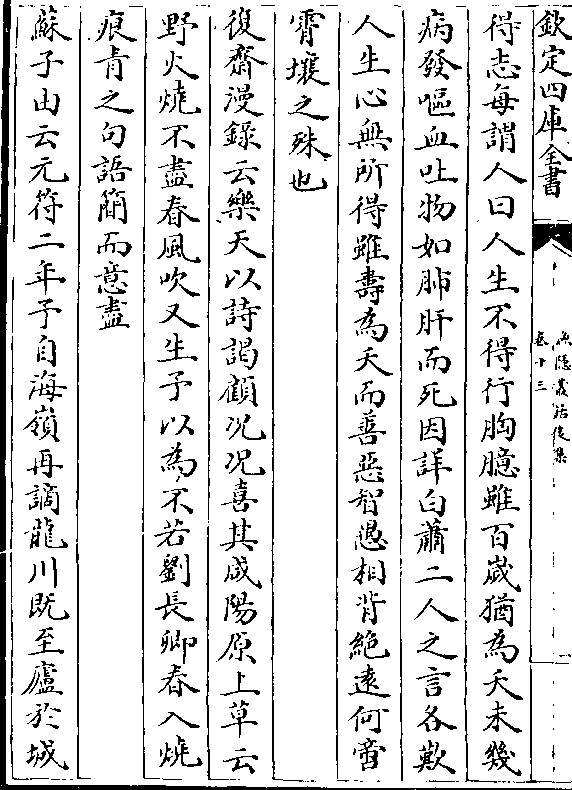 欽定四庫全書
漁隱叢話後集
卷十三
得志每謂人曰人生不得行胸臆雖百歲猶為夭未幾
病發嘔血吐物如肺肝而死因詳白蕭二人之言各歎
人生心無所得雖壽為夭而善惡智愚相背絶遠何啻
霄壤之殊也
復齋漫錄云樂天以詩謁顧况况喜其咸陽原上草云
野火燒不盡春風吹又生予以為不若劉長卿春入燒
痕青之句語簡而意盡
蘇子由云元符二年予自海嶺再謫龍川既至廬於城